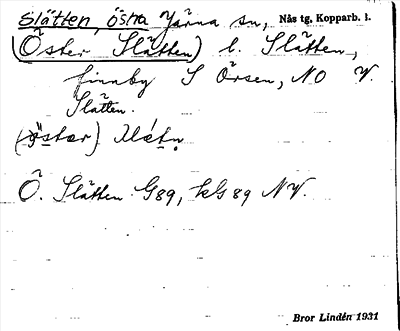 Slätten, östra Järna sn, Nås tg, Kopparb. l.
(Öster Slätten) l. Slätten,
finnby S Örsen, NO V.
Slätten.
(öster)
Ö. Slätten G89, kG89 NV.
Bror Lindén 1931